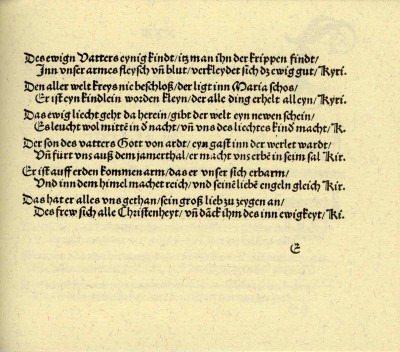 Des ewign Vatters eynig kindt/ itz man ihn der krippen findt/
Inn vnser armes fleysch vñ blut/ verkleydet sich dz ewig gut/ Kyri.
Den aller welt kreys nie beschloß/ der ligt inn Maria schos/
Er ist eyn kindlein worden kleyn/ der alle ding erhelt alleyn/ Kyri.
Das ewig liecht geht da herein/ gibt der welt eyn newen schein/
Es leucht wol mitte in d nacht/ vñ vns des liechtes kind macht/ K.
Der son des vatters Gott von ardt/ eyn gast inn der werlet wardt/
Vñ fürt vns auß dem jamerthal/ er macht vns erbē in seim sal Kir.
Er ist auff erden kommen arm/ das er vnser sich erbarm/
Vnd inn dem himel machet reich/ vnd seinē liebē engeln gleich Kir.
Das hat er alles vns gethan/ sein groß lieb zu zeygen an/
Des frew sich alle Christenheyt/ vñ dāck ihm des inn ewigkeyt/ Ki.
E